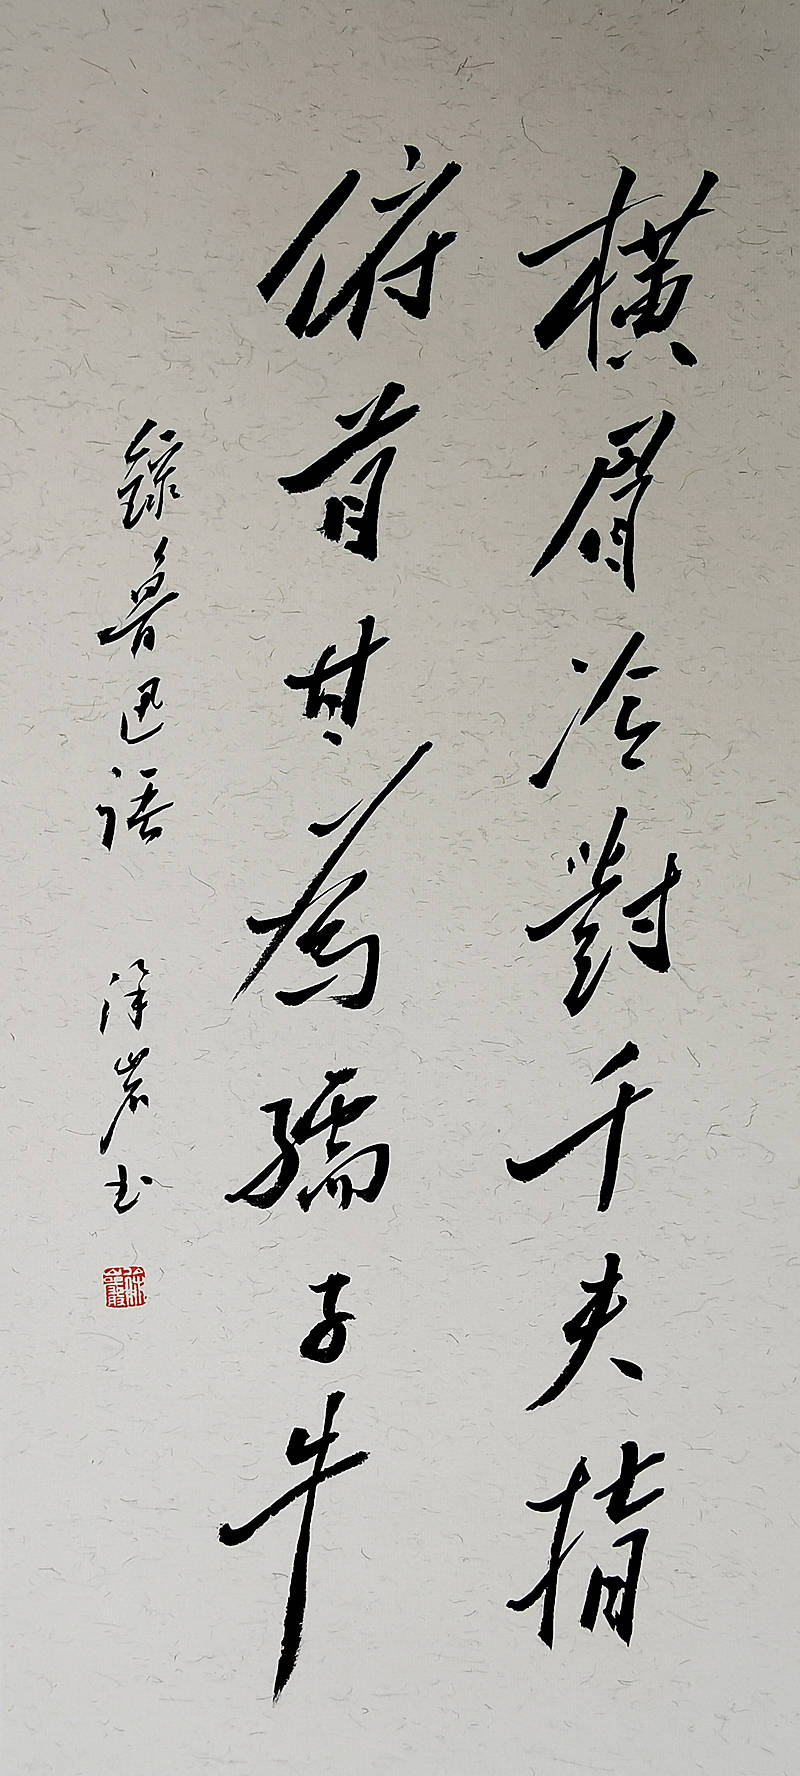 橫眉冷對千夫指
俯首甘為孺子牛
錄魯迅语
岩书